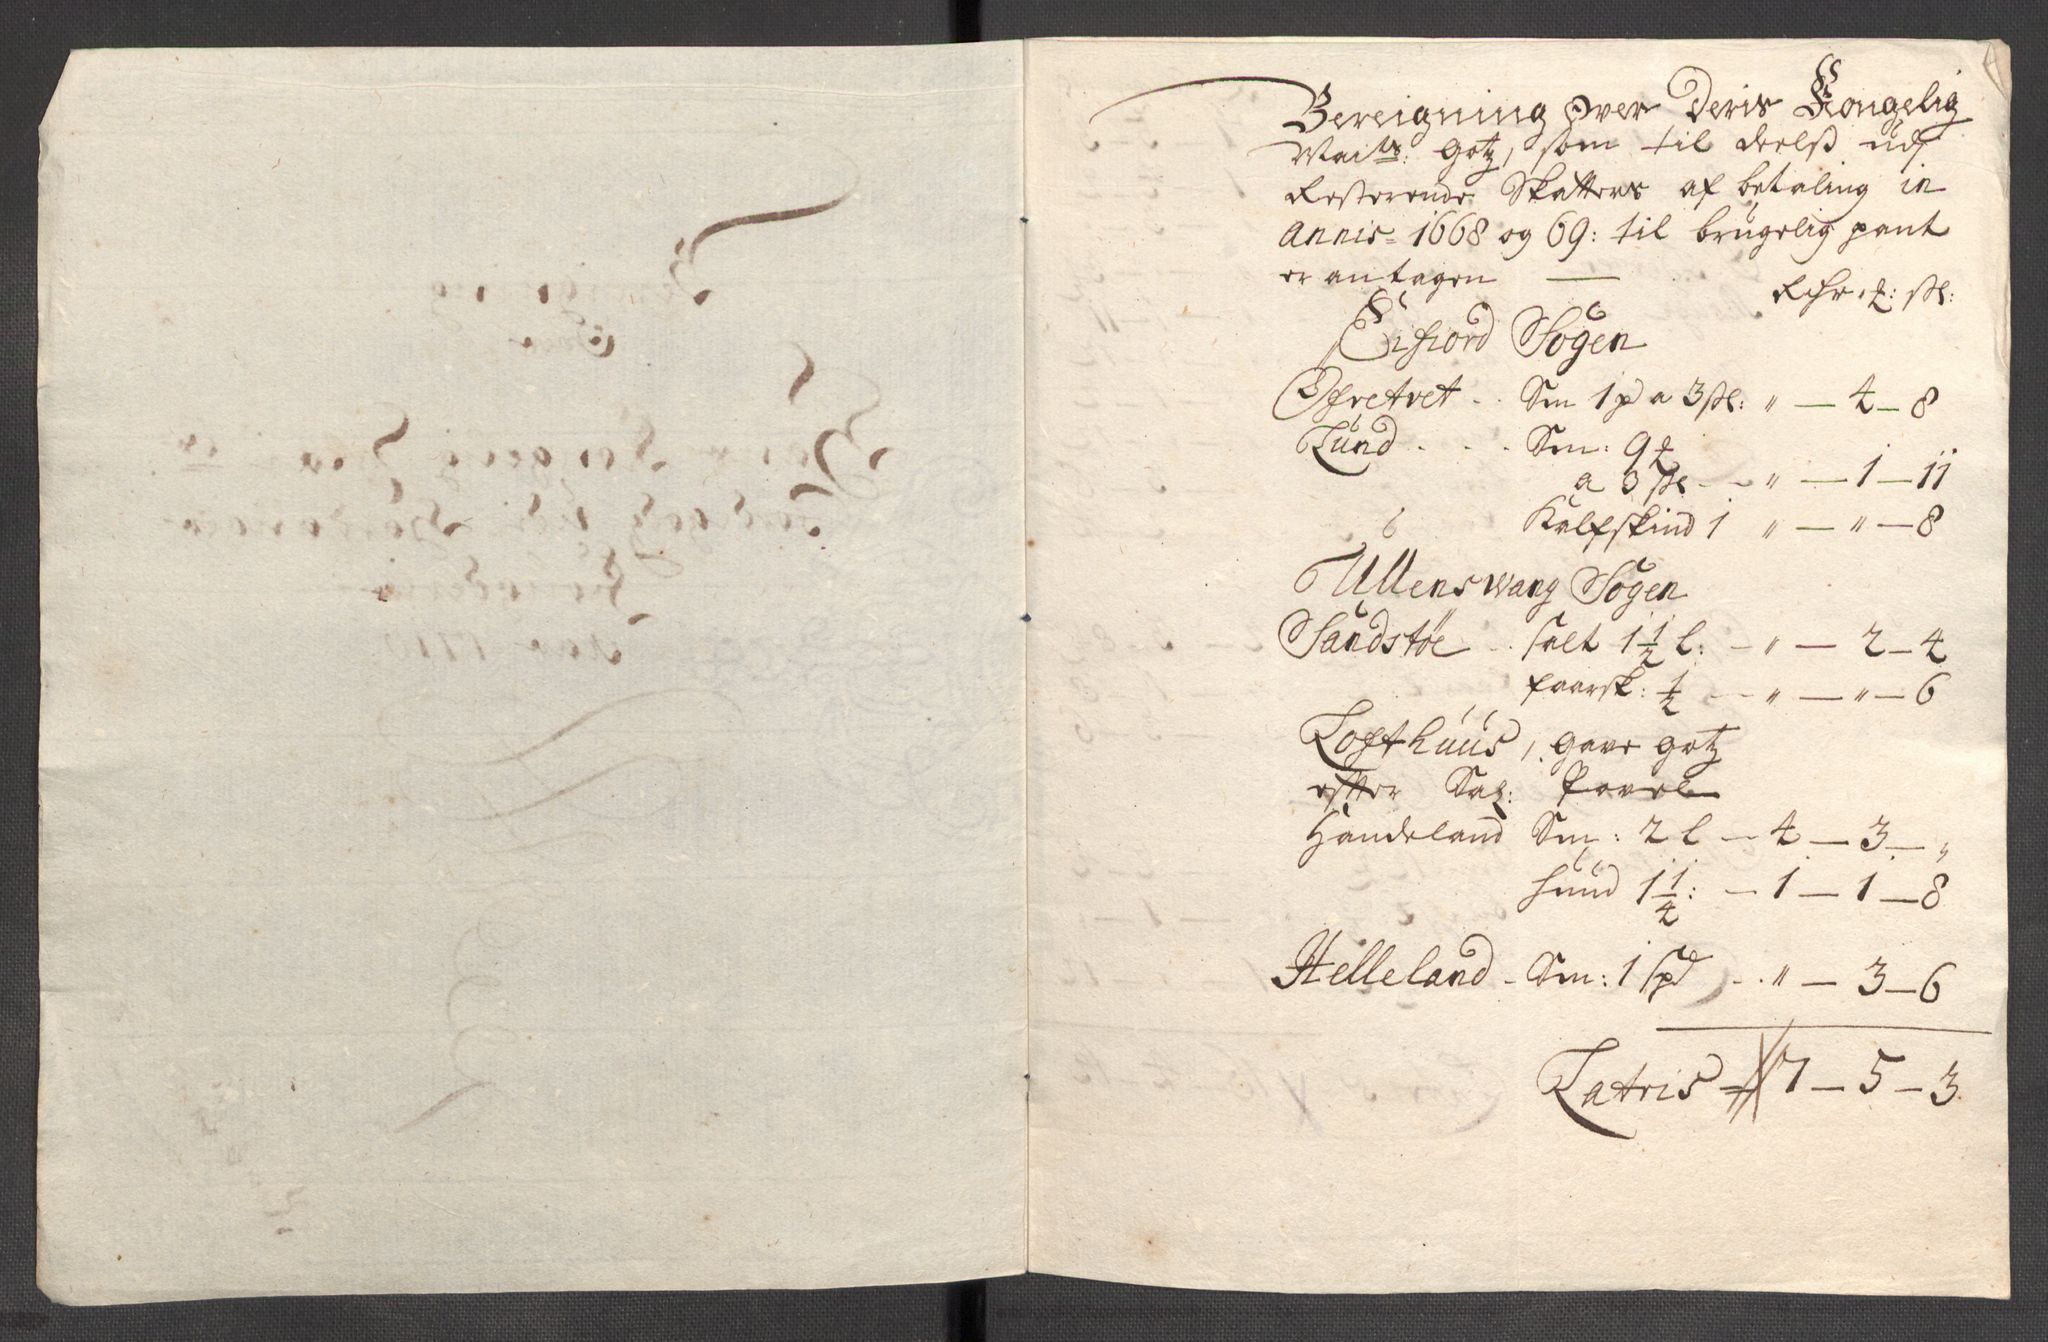 Bereigning Over Deris Kongelig
Maits: gotz, som til deelß udj
Resterende Skatters af betaling in
Annis= 1668 og 69: til brugelig pant
er antagen —
Rdr. ꝑ: ßl:
Eifiord Sogen
Ofretvet . . Sm 1 p a 3 ßl: „ — 4 — 8
Lund . . . Sm: 9 ꝑ
a 3 ßl — „ — 1 — 11
Kalfskind 1 „ — „ — 8
Ullenswang Sogen
Sandstøe . . salt 1 1/2 l: — „ — 2 — 4
faarsk: 1/2 — „ — „ — 6
Lofthuus, gave gotz
efter Sal: Povel
Handeland Sm: 2 l — 4 — 3 — „
huud 1 1/4: — 1 — 1 — 8
Helleland – Sm: 1 spd — „ — 3 — 6
Latris 7 — 5 — 3